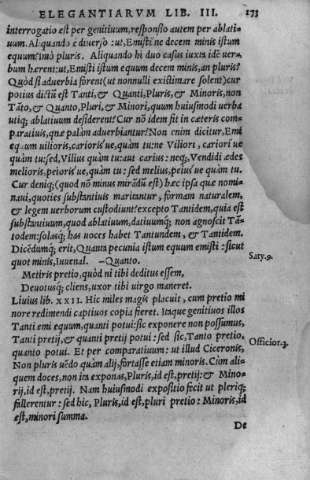 ELEGANTIARVM LIB. III. 173
interrogatio est per genitiuum, responsio autem per ablati-
uum. Aliquando e diuerso: ut, Emisti ne decem minis istum
equum? imò pluris. Aliquando hi duo casus iuxta idē uer-
bum hærent: ut, Emisti istum equum decem minis, an pluris?
Quòd si aduerbia forent (ut nonnulli existimare solent) cur
potius dictū est Tanti, & Quanti, Pluris, & Minoris, non
Tāto, & Quanto, Pluri, & Minori, quum huiusmodi uerba
utiq; ablatiuum desiderent? Cur nō idem fit in cæteris com-
paratiuis, quæ palàm aduerbiantur? Non enim dicitur, Emi
equum uilioris, carioris ue, quàm tu: ne Viliori, cariori ue
quàm tu: sed, Vilius quàm tu: aut carius: neq;, Vendidi ædes
melioris, peioris ue, quàm tu: sed melius, peius ue quàm tu.
Cur deniq; (quod nō minus mirādū est) hæc ipsa quæ nomi-
naui, quoties substantiuis maritantur, formam naturalem,
& legem uerborum custodiunt? excepto Tantidem, quia est
substantiuum, quod ablatiuum, datiuumq; non agnoscit Tā-
todem: solamq; has uoces habet Tantundem, & Tantidem.
Dicēdumq; erit, Quanta pecunia istum equum emisti: sicut
quot minis, Iuuenal. —Quanto. Saty.9.
Metiris pretio, quòd ni tibi deditus essem,
Deuotusq; cliens, uxor tibi uirgo maneret.
Liuius lib. XXII. Hic miles magis placuit, cum pretio mi
nore redimendi captiuos copia fieret. Itaque genitiuos illos
Tanti emi equum, quanti potui: sic exponere non possumus,
Tanti pretij, & quanti pretij potui: sed sic, Tanto pretio,
quanto potui. Et per comparatiuum: ut illud Ciceronis, Officior.3.
Non pluris uēdo quàm alij, fortasse etiam minoris. Cùm ali-
quem doces, non ita exponas, Pluris, id est, pretij: & Mino-
rij, id est, pretij. Nam huiusmodi expositio fecit ut pleriq;
fallerentur: sed hic, Pluris, id est, pluri pretio: Minoris, id
est, minori summa.
De